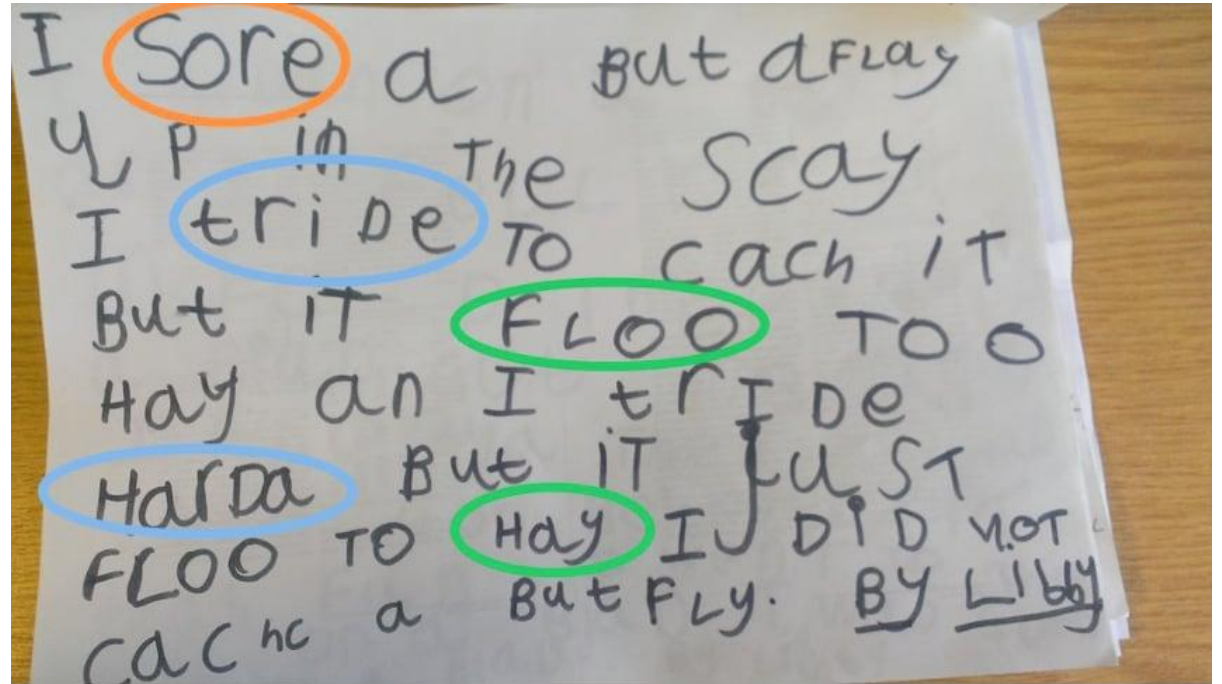 I Sore a But aFLay
UP in The Scay
I triDe TO cach iT
But iT FLOO TOO
Hay an I trIDe
HarDa But iT JuST
FLOO TO Hay I DiD NOT
cachc a ButFLy. By Libby